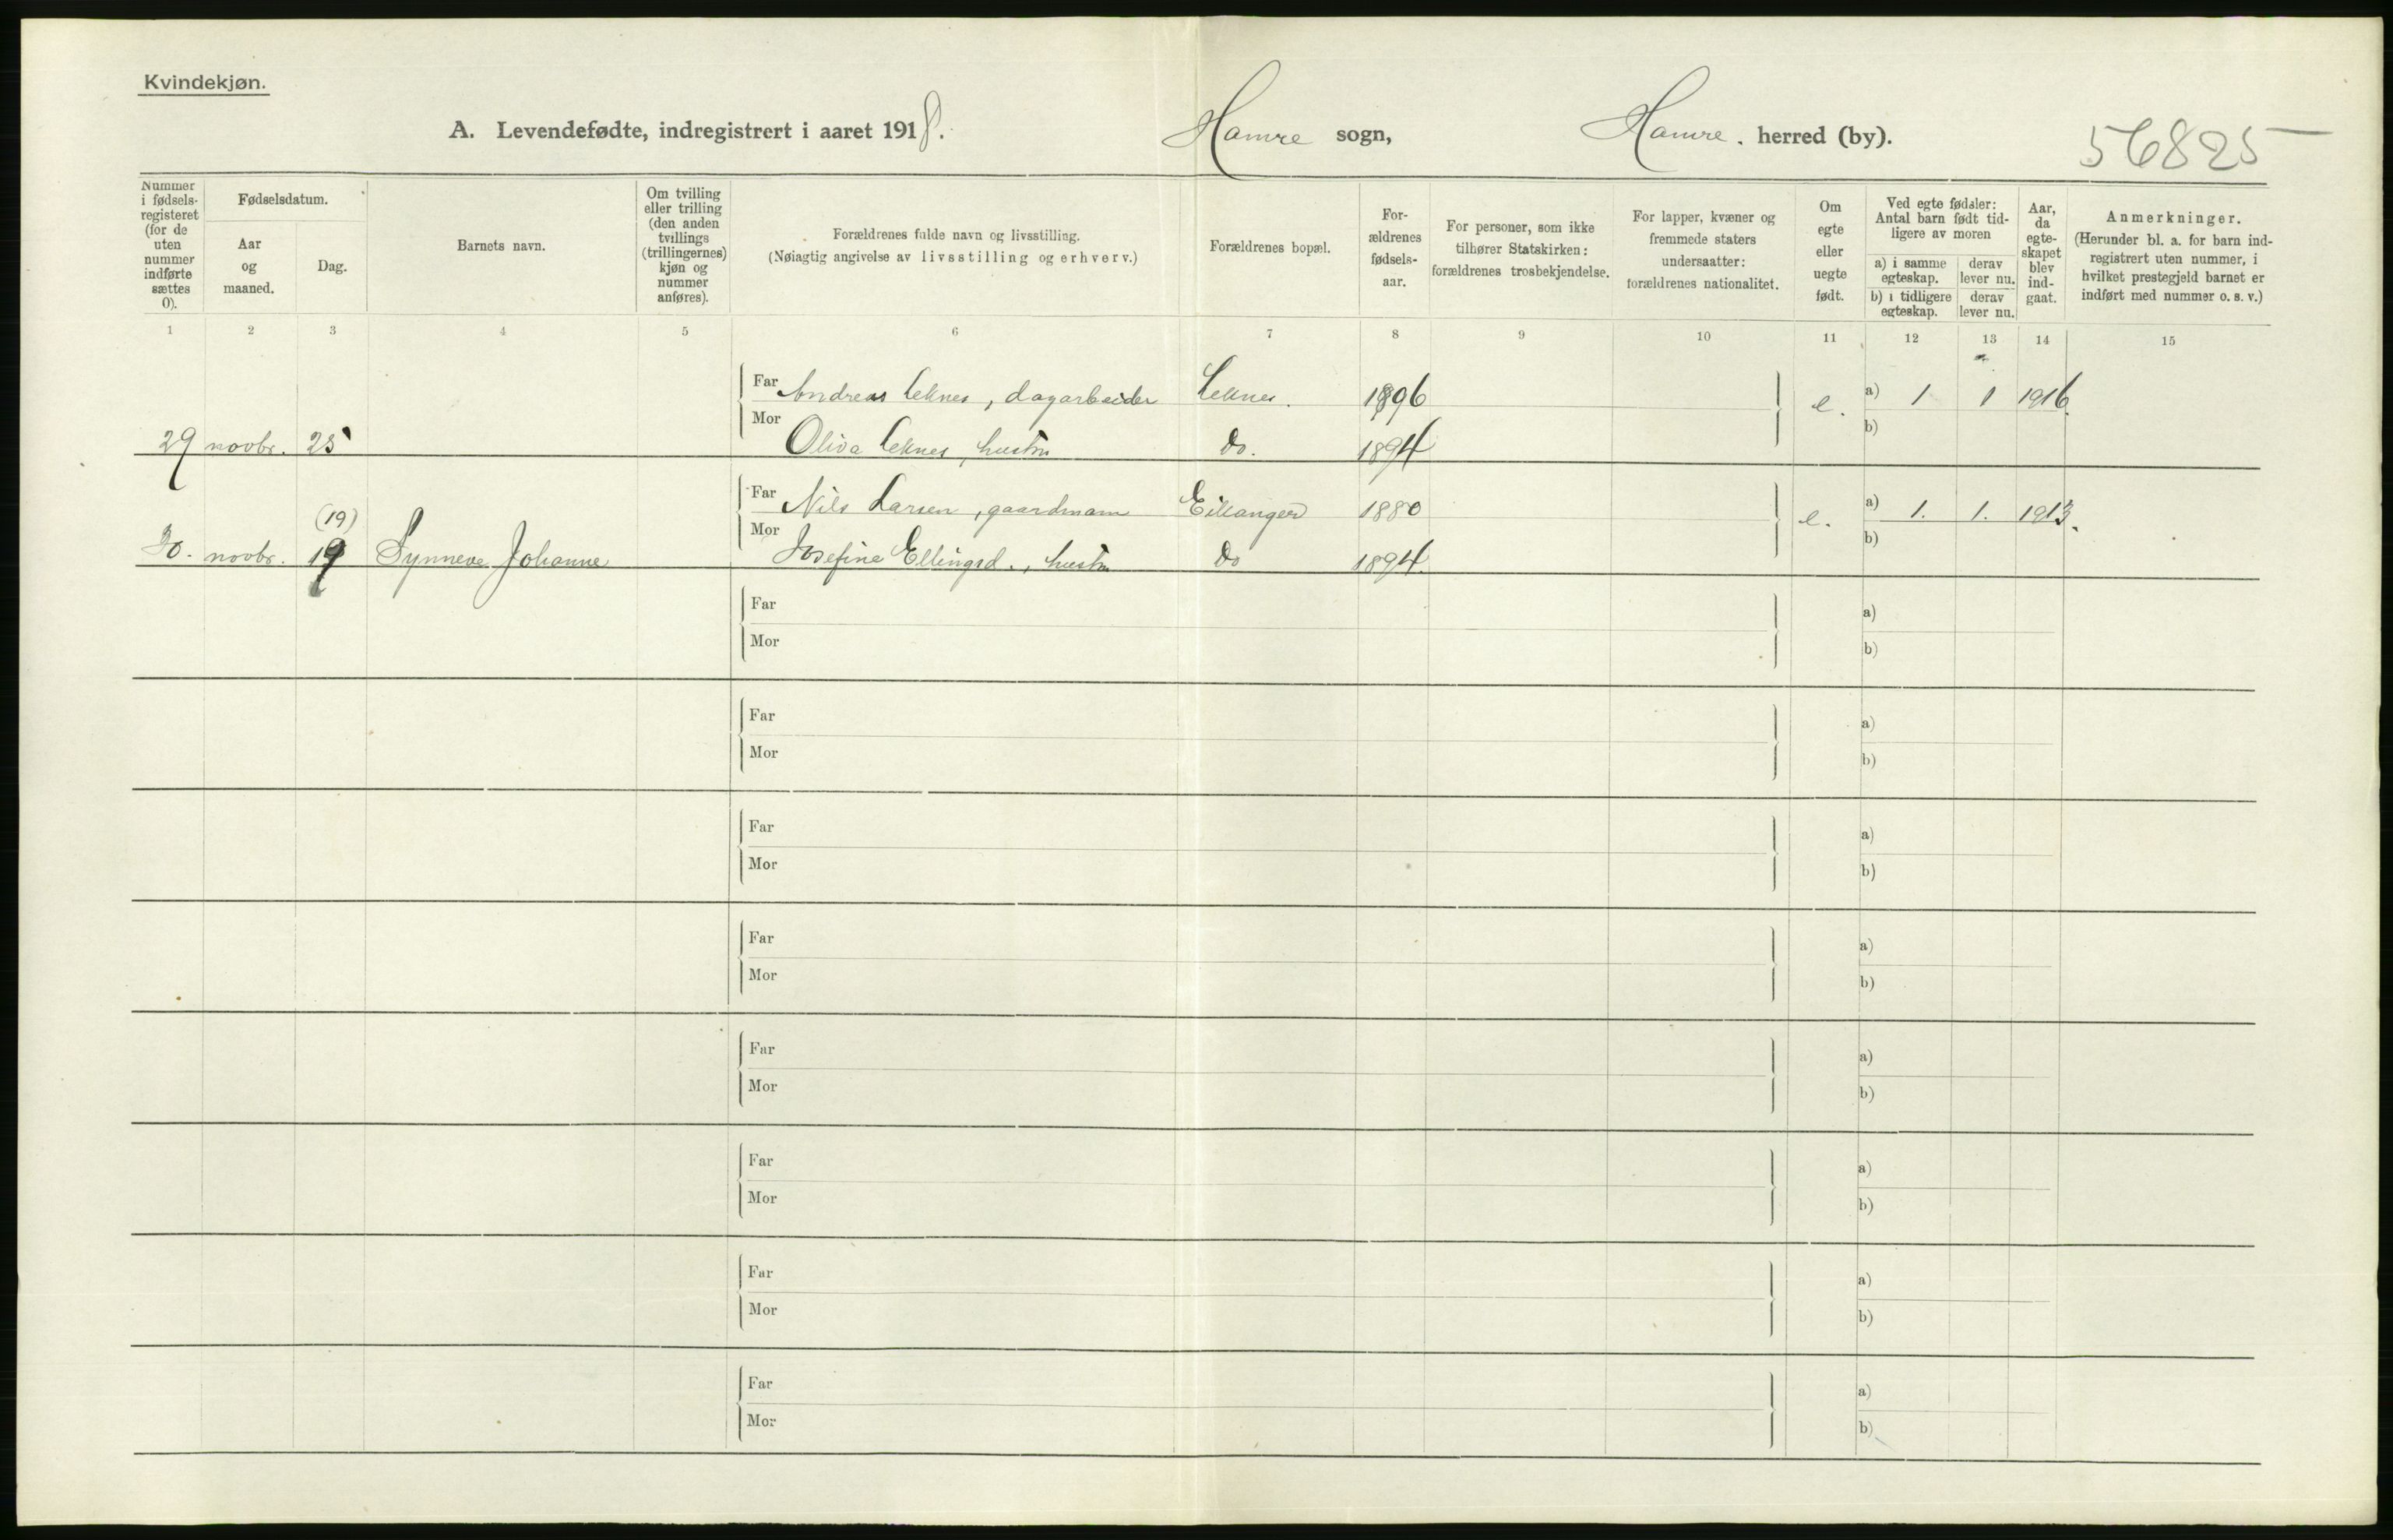 Kvindekjøn.
A. Levendefødte, indregistrert i aaret 1918. Hamre sogn, Hamre. herred (by). 56825
Nummer i fødsels-registeret (for de uten nummer indførte sættes 0).
Fødselsdatum.
Aar og maaned.
Dag.
Barnets navn.
Om tvilling eller trilling (den anden tvillings (trillingernes) kjøn og nummer anføres).
Forældrenes fulde navn og livsstilling.
(Nøiagtig angivelse av livsstilling og erhverv.)
Forældrenes bopæl.
For-ældrenes fødsels-aar.
For personer, som ikke tilhører Statskirken: forældrenes trosbekjendelse.
For lapper, kvæner og fremmede staters undersaatter: forældrenes nationalitet.
Om egte eller uegte født.
Ved egte fødsler: Antal barn født tid-ligere av moren
a) i samme egteskap.
derav lever nu.
b) i tidligere egteskap.
derav lever nu.
Aar, da egte-skapet blev ind-gaat.
Anmerkninger.
(Herunder bl. a. for barn ind-registrert uten nummer, i hvilket prestegjeld barnet er indført med nummer o. s. v.)
1 2 3 4 5 6 7 8 9 10 11 12 13 14 15
Far Andreas Leknes, dagarbeider Leknes. 1896 e. a) 1 1 1916.
29 novbr. 25 Mor Oliva Leknes, hustru do. 1894 b)
(19) Far Nils Larsen, gaardmann Eikanger 1880 e. a) 1. 1. 1913.
30. novbr. 19 Synneve Johanne Mor Josefine Ellingsd., hustru do 1894. b)
Far a)
Mor b)
Far a)
Mor b)
Far a)
Mor b)
Far a)
Mor b)
Far a)
Mor b)
Far a)
Mor b)
Far a)
Mor b)
Far a)
Mor b)